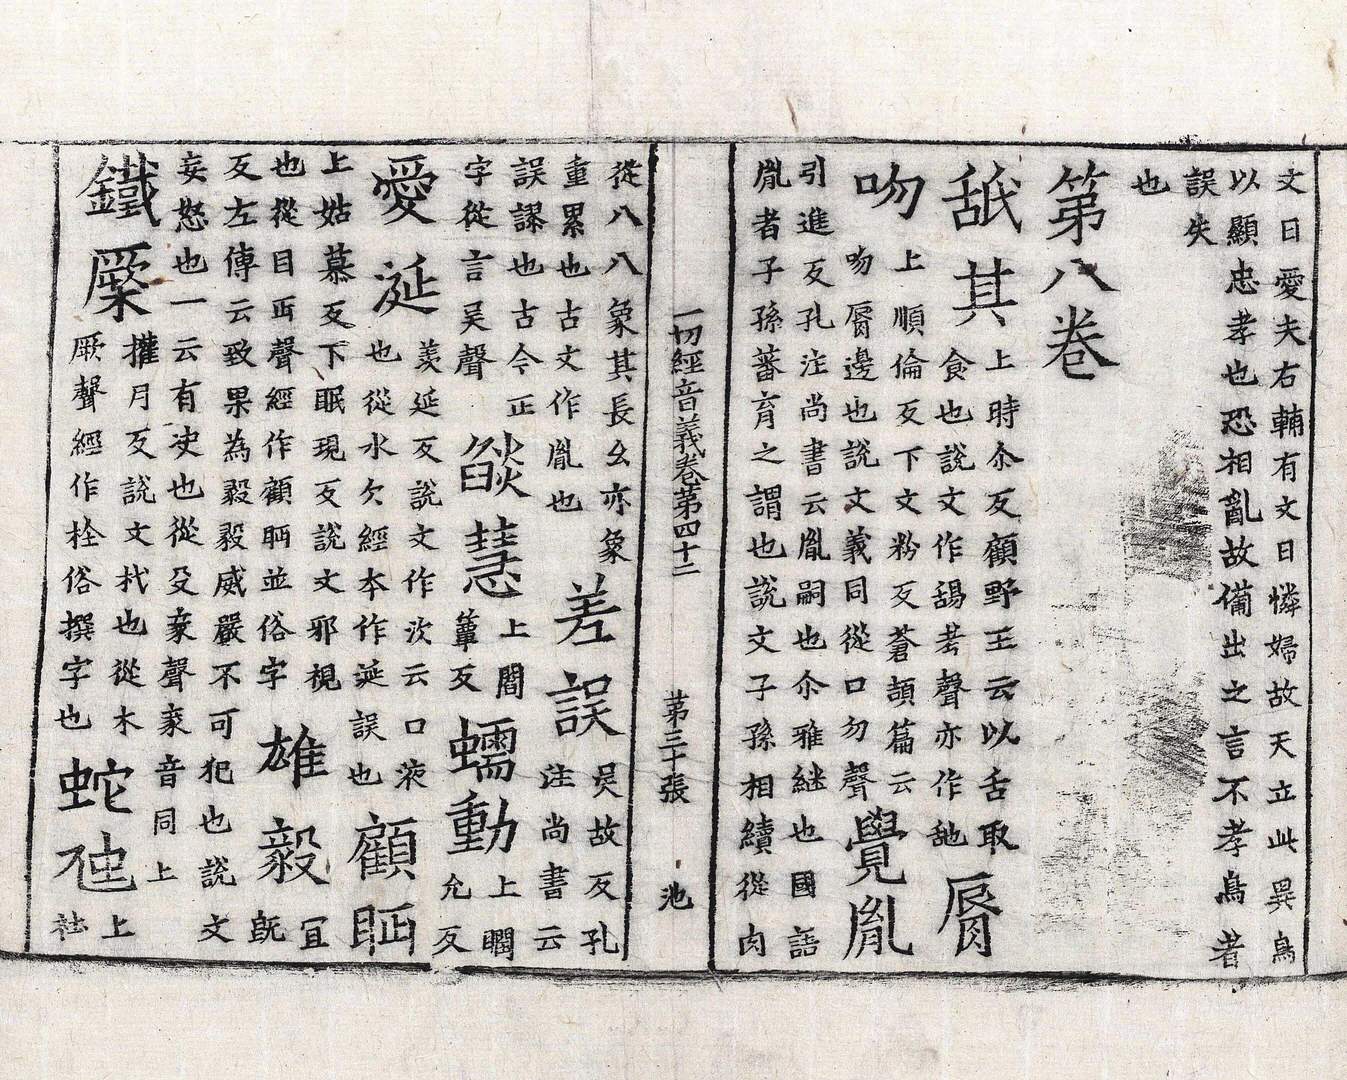 文曰愛夫右輔有文曰憐婦故天立此異鳥
以顯忠孝也恐相亂故備出之言不孝鳥者
誤失
也
第八卷
舐其
上時尒反顧野王云以舌取
食也說文作䑛昜聲亦作舓
脣
吻
上順倫反下文粉反蒼頡篇云
吻脣邊也說文義同從口勿聲
覺胤
引進反孔注尚書云胤嗣也尒雅継也國語
胤者子孫蕃育之謂也說文子孫相續從肉
一切經音義卷第四十二 第三十張 池
從八八象其長幺亦象
重累也古文作胤也
差誤
吳故反孔
注尚書云
誤謬也古今正
字從言吴聲
燄慧
上閻
簟反
蠕動
上瞤
允反
愛涎
羨延反說文作㳄云口液
也從水欠經本作涎誤也
顧眄
上姑慕反下眠現反說文邪視
也從目丏聲經作顧眄並俗字
雄毅
宜
既
反左傳云致果為毅毅威嚴不可犯也說文
妄怒也一云有决也從殳豙聲豙音同上
鐵橜
權月反說文杙也從木
厥聲經作栓俗撰字也
蛇虺
上
社